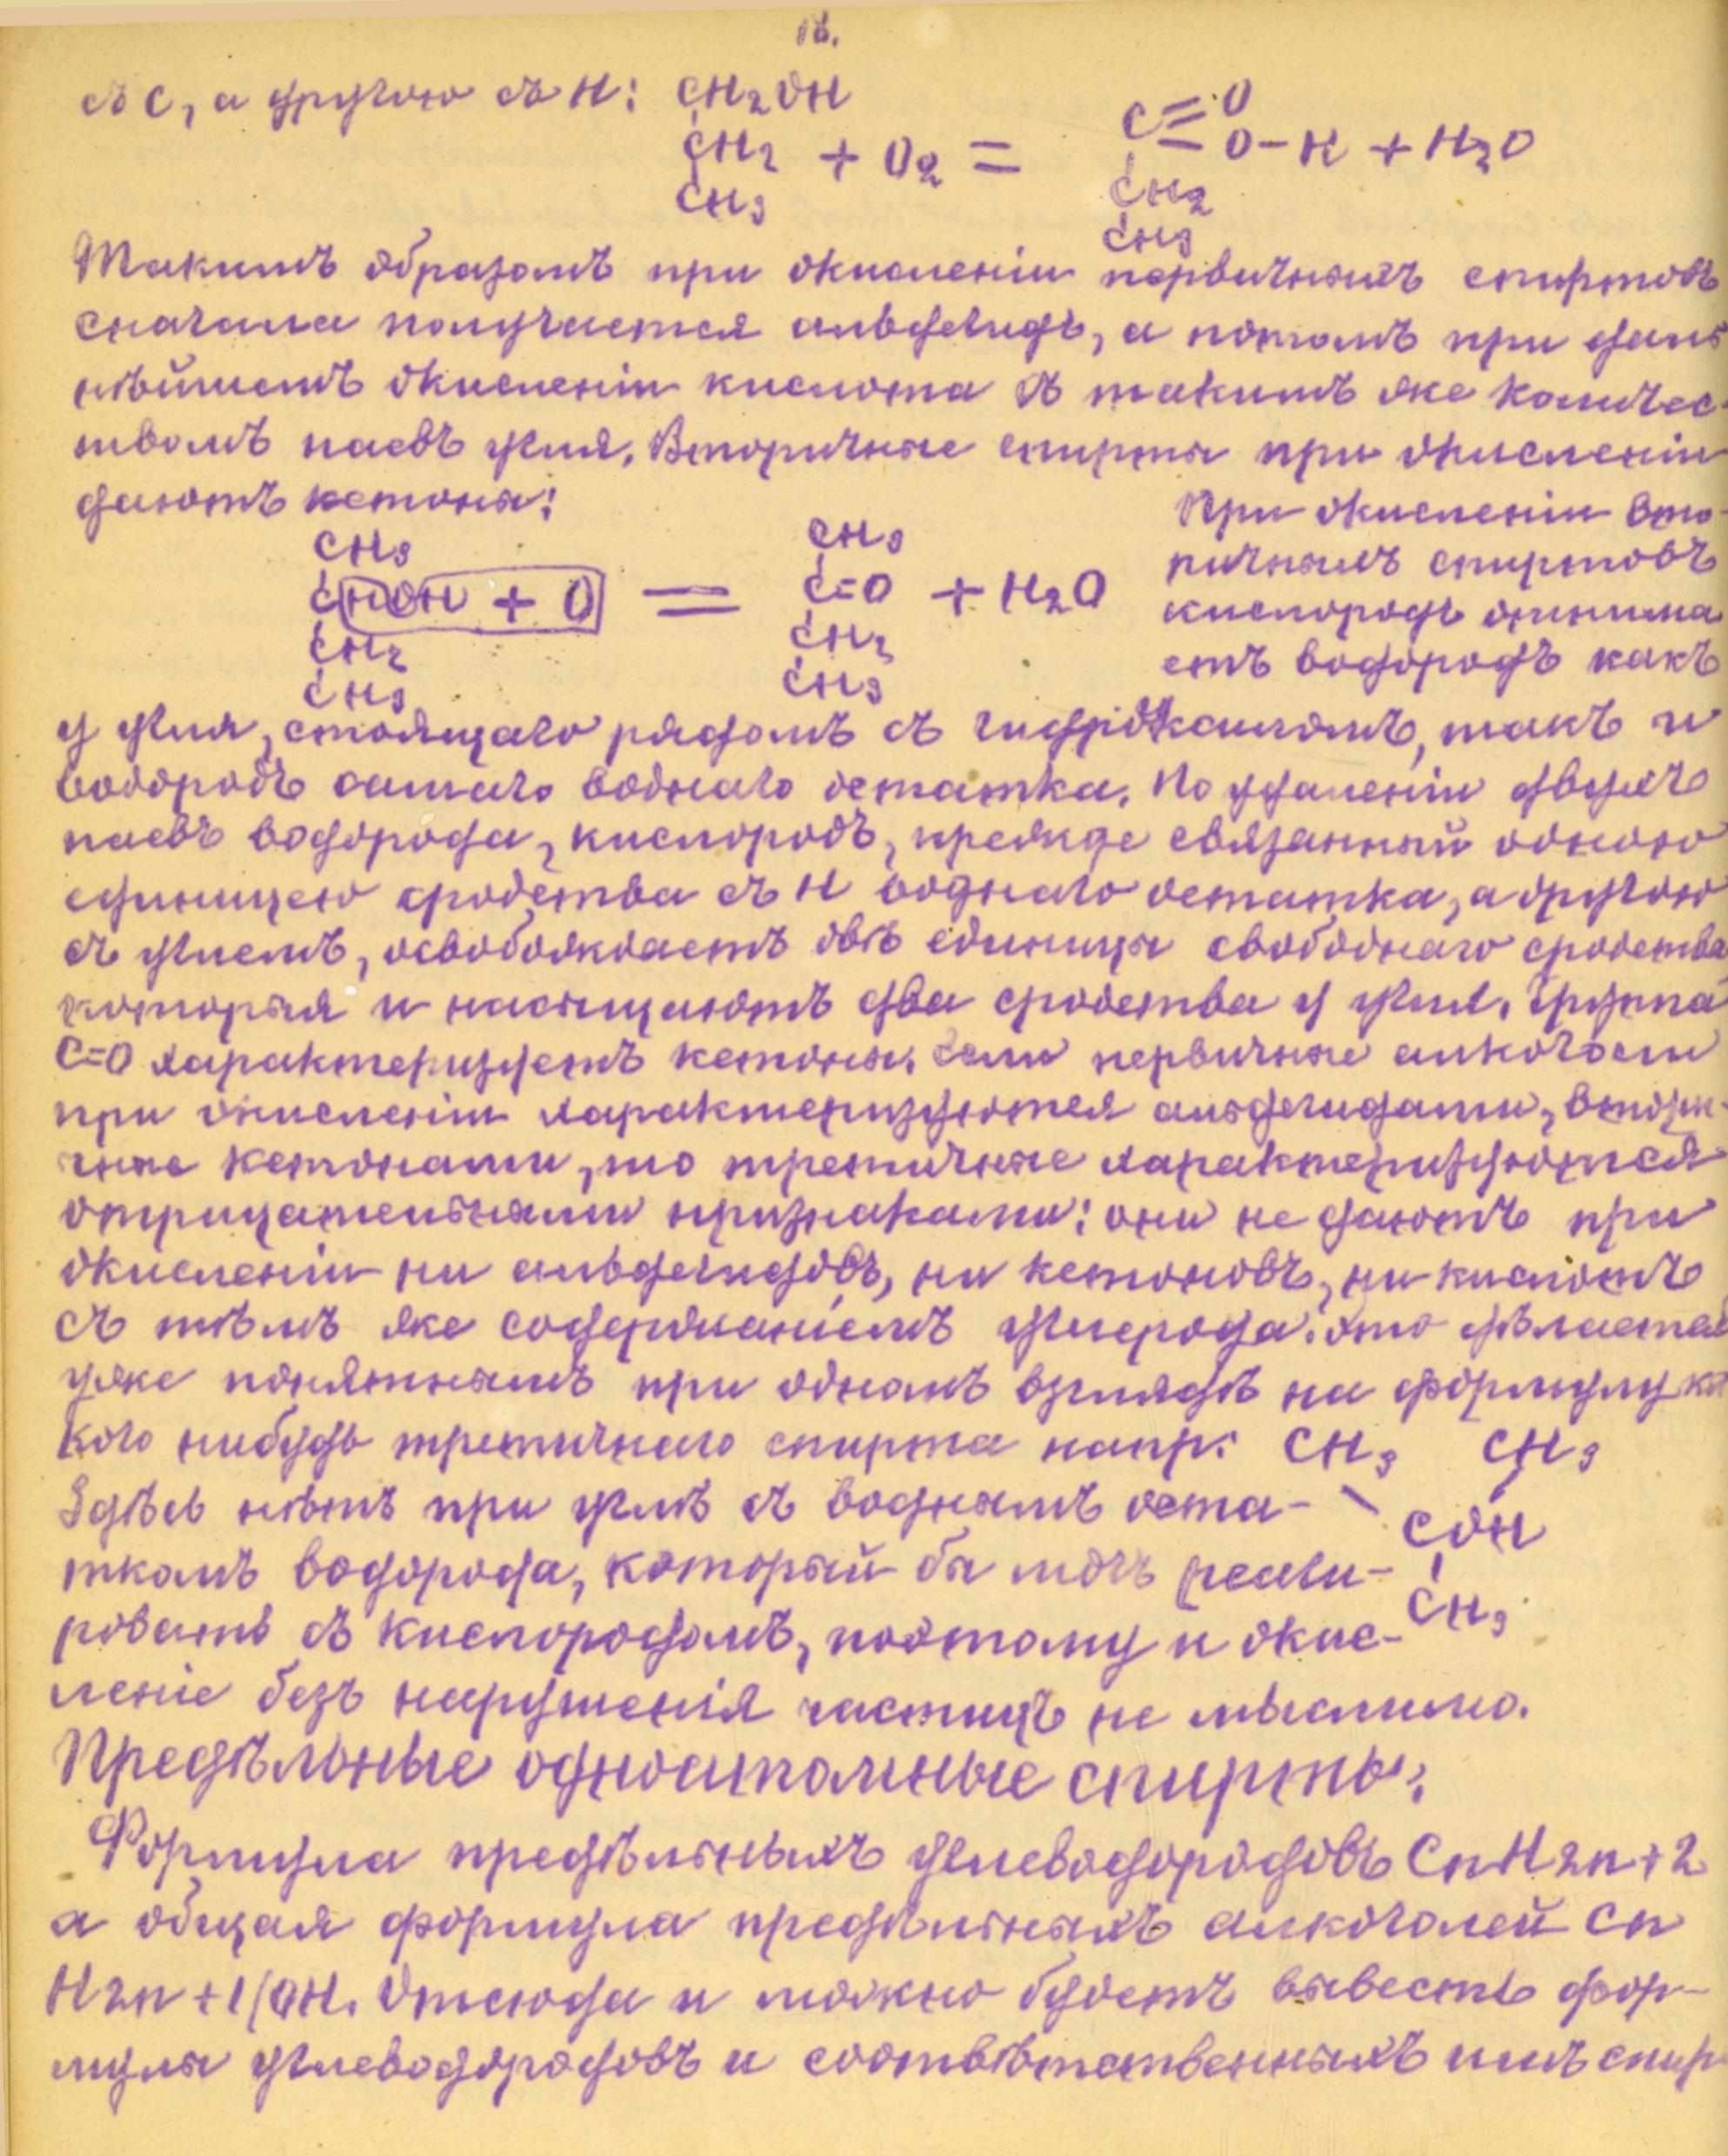 16.
съ С, а другою съ Н: CH2OH
CH2 + O2 = C=O O-H + H2O
CH3 CH2
CH3
Такимъ образомъ при окисленіи первичныхъ спиртовъ
сначала получается альдегидъ, а потомъ при даль
нѣйшемъ окисленіи кислота съ такимъ же количес-
твомъ паевъ угля. Вторичные спирты при окисленіи
даютъ кетоны:
CH3
CHOH + O
CH2
CH3
=
CH3
C=O + H2O
CH2
CH3
При окисленіи вто-
ричныхъ спиртовъ
кислородъ отнима
етъ водородъ какъ
у угля, стоящаго рядомъ съ гидроксиломъ, такъ и
водородъ самаго воднаго остатка. По удаленіи двухъ
паевъ водорода, кислородъ, прежде связанный одною
единицею сродства съ Н воднаго остатка, а другою
съ углемъ, освобождаетъ двѣ единицы свободнаго сродства
которыя и насыщаютъ два сродства у угля. Группа
C=O характеризуетъ кетоны. Если первичные алкоголи
при окисленіи характеризуются альдегидами, втори-
чные кетонами, то третичные характеризуются
отрицательными признаками: они не даютъ при
окисленіи ни альдегидовъ, ни кетоновъ, ни кислотъ
съ тѣмъ же содержаніемъ углерода. это дѣлается
уже понятнымъ при одномъ взглядѣ на формулу ка
кого нибудь третичнаго спирта напр: CH3 CH3
Здѣсь нѣтъ при углѣ съ воднымъ оста-
COH
ткомъ водорода, который бы могъ реаги-
CH3
ровать съ кислородомъ, поэтому и окис-
леніе безъ нарушенія частицъ не мыслимо.
Предѣльные одноатомные спирты.
Формула предѣльныхъ углеводородовъ CnH2n+2
а общая формула предѣльныхъ алкоголей Cn
H2n+1(OH. Отсюда и можно будетъ вывесть фор-
мулы углеводородовъ и соотвѣтственныхъ имъ спир